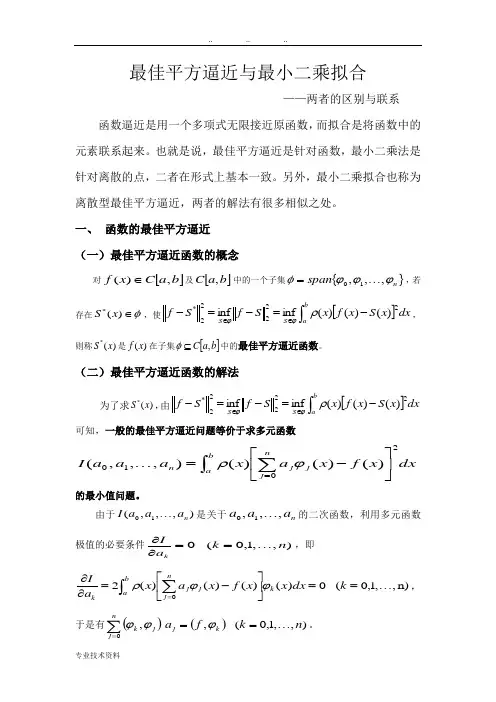 .. _ ..
最佳平方逼近与最小二乘拟合
——两者的区别与联系
函数逼近是用一个多项式无限接近原函数，而拟合是将函数中的
元素联系起来。也就是说，最佳平方逼近是针对函数，最小二乘法是
针对离散的点，二者在形式上基本一致。另外，最小二乘拟合也称为
离散型最佳平方逼近，两者的解法有很多相似之处。
一、 函数的最佳平方逼近
（一）最佳平方逼近函数的概念
对 f(x)∈C[a,b]及C[a,b]中的一个子集φ=span{φ₀,φ₁,…,φₙ}，若
存在S*(x)∈φ，使‖f−S*‖₂²=inf_{s∈φ}‖f−S‖₂²=inf_{s∈φ}∫ₐᵇρ(x)[f(x)−S(x)]²dx，
则称S*(x)是f(x)在子集φ⊆C[a,b]中的最佳平方逼近函数。
（二）最佳平方逼近函数的解法
为了求S*(x)，由‖f−S*‖₂²=inf_{s∈φ}‖f−S‖₂²=inf_{s∈φ}∫ₐᵇρ(x)[f(x)−S(x)]²dx
可知，一般的最佳平方逼近问题等价于求多元函数
I(a₀,a₁,…,aₙ)=∫ₐᵇρ(x)[∑_{j=0}^{n}a_Jφ_J(x)−f(x)]²dx
的最小值问题。
由于I(a₀,a₁,…,aₙ)是关于a₀,a₁,…,aₙ的二次函数，利用多元函数
极值的必要条件∂I/∂a_k=0 (k=0,1,…,n)，即
∂I/∂a_k=2∫ₐᵇρ(x)[∑_{j=0}^{n}a_jφ_j(x)−f(x)]φ_k(x)dx=0 (k=0,1,…,n)，
于是有∑_{j=0}^{n}(φ_k,φ_j)a_j=(f,φ_k) (k=0,1,…,n)。
专业技术资料